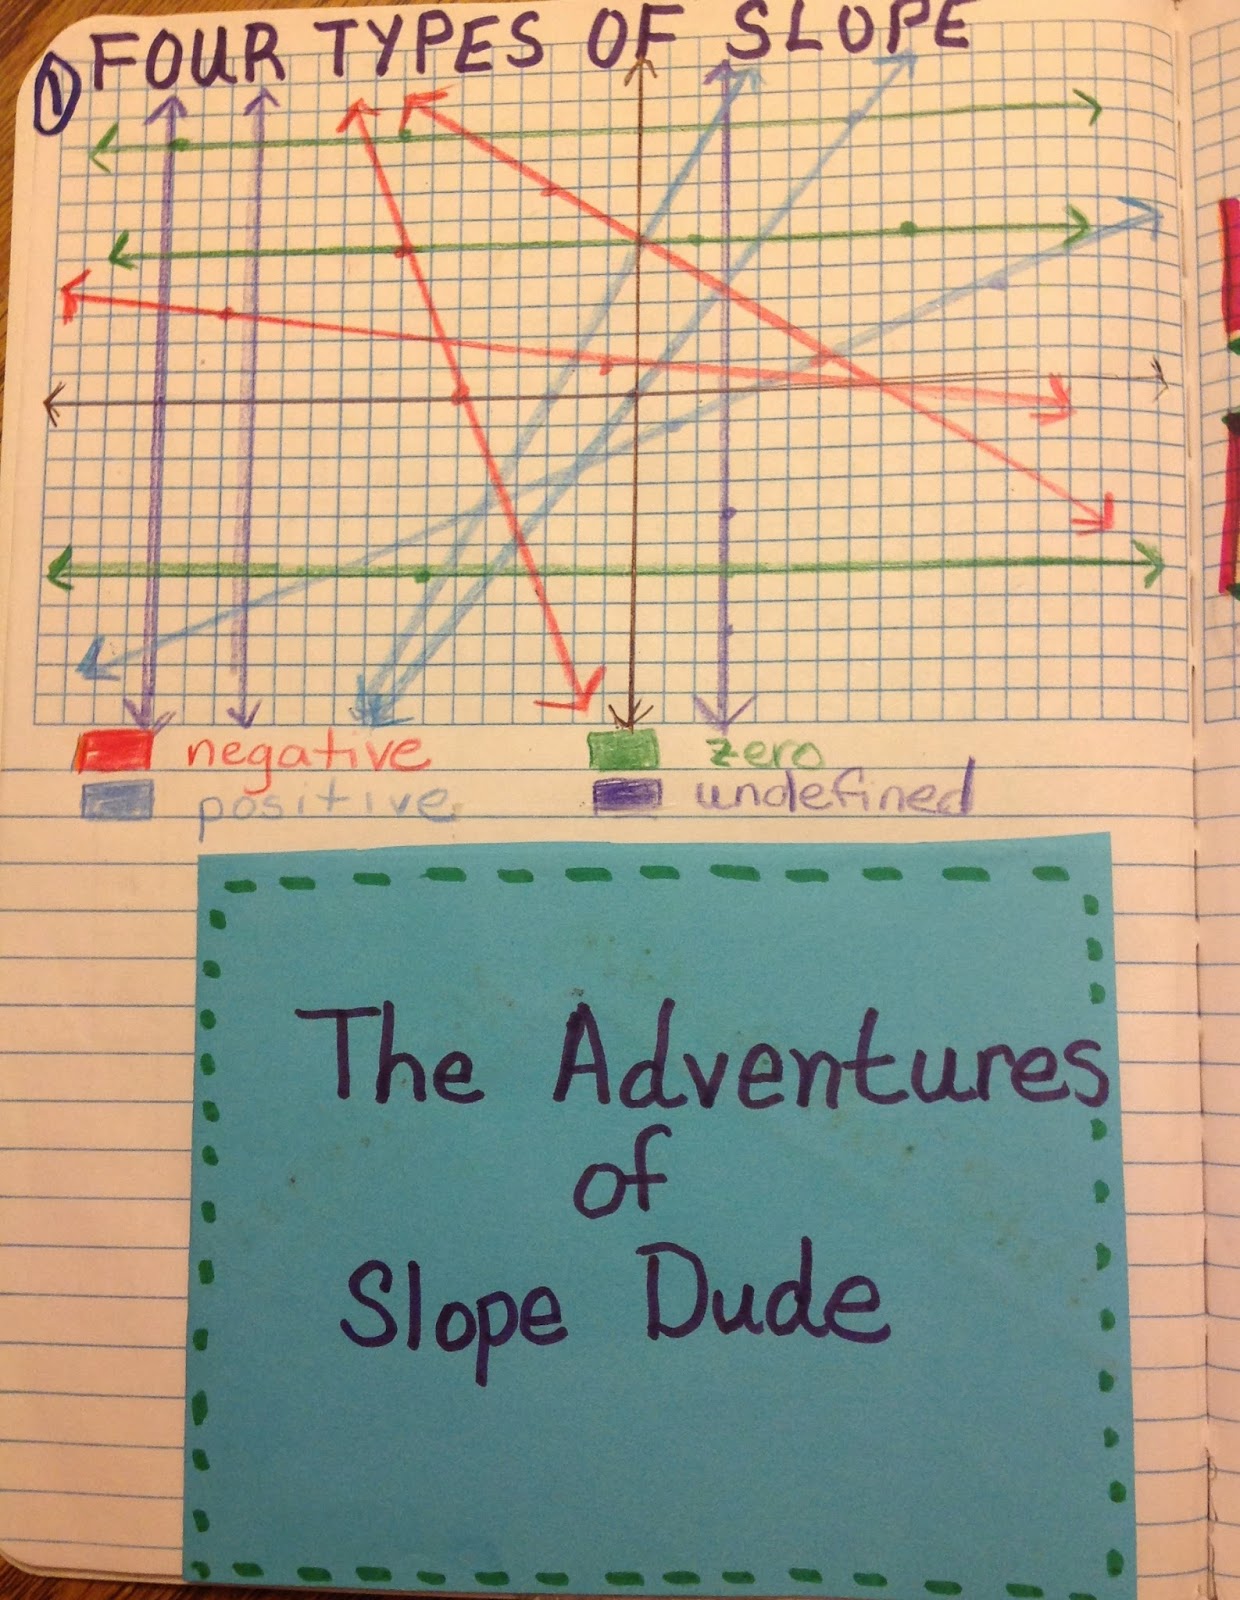 ① FOUR TYPES OF SLOPE
negative zero
positive undefined
The Adventures
of
Slope Dude